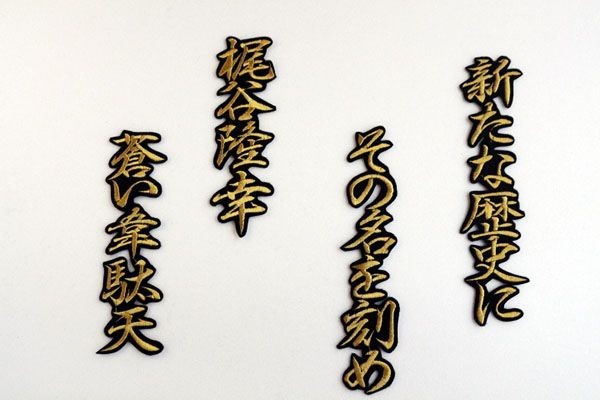 新たな歴史に
その名を刻め
梶谷隆幸
蒼い韋駄天